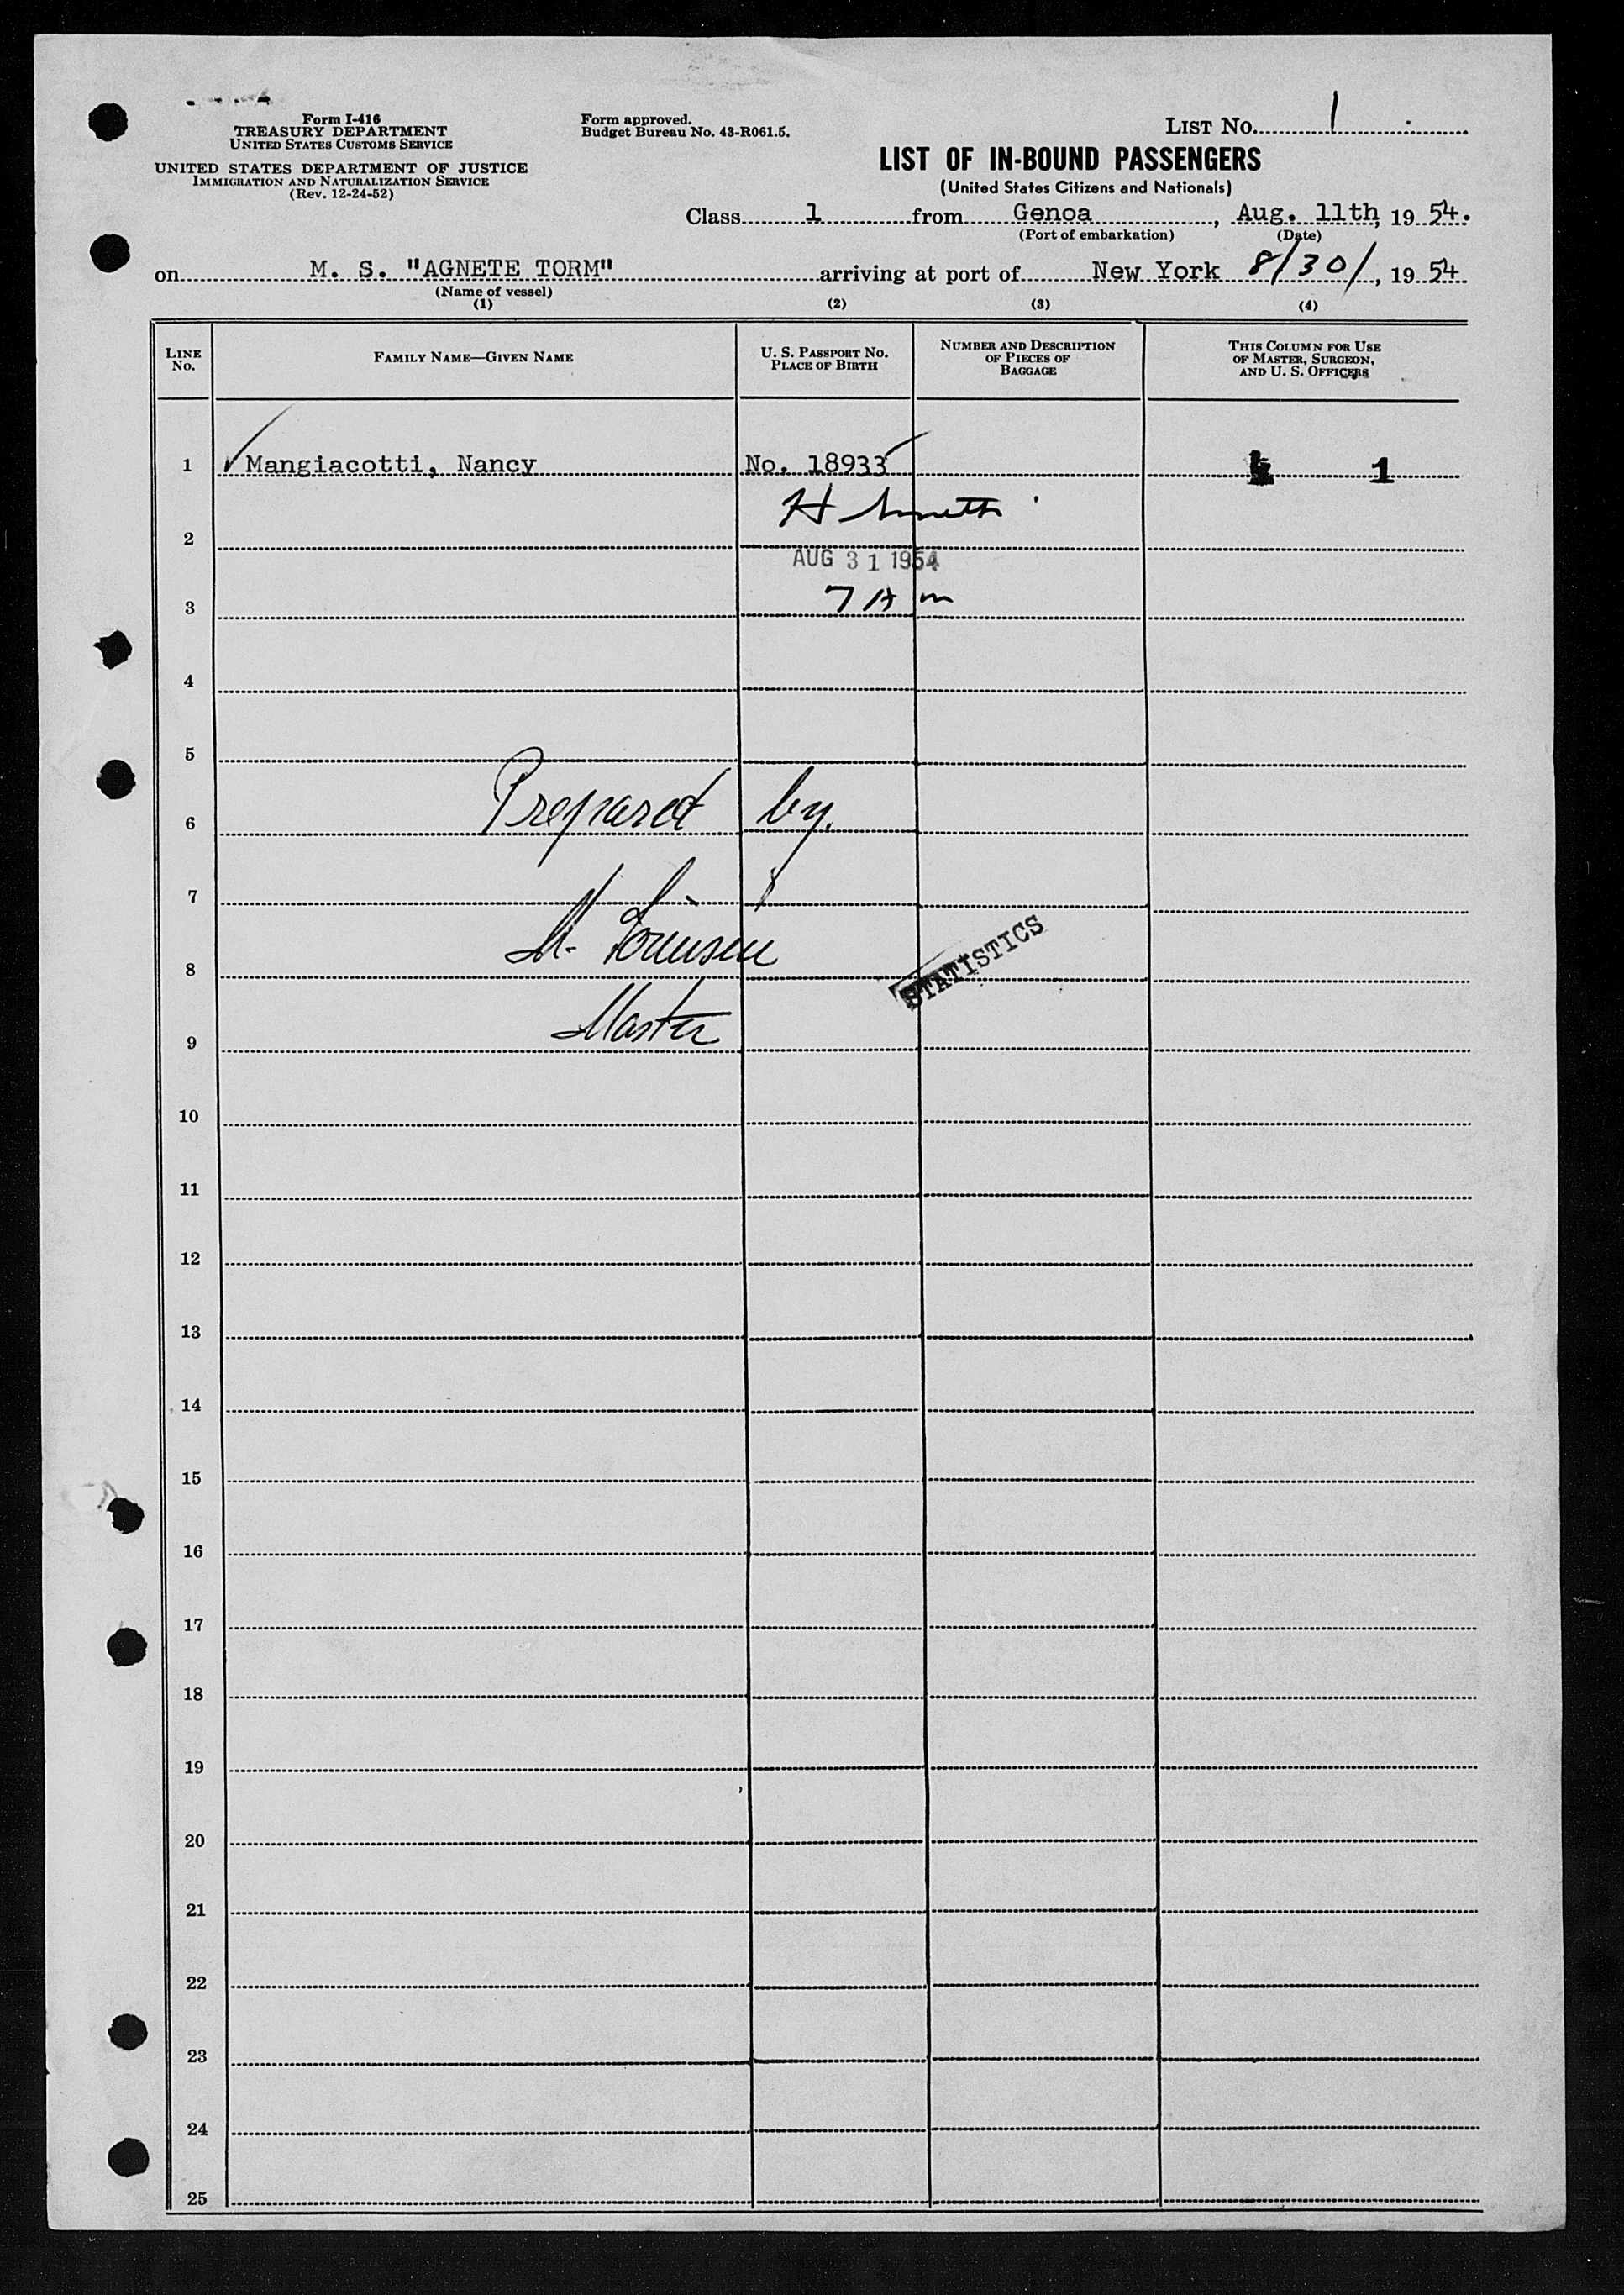 Form I-416
TREASURY DEPARTMENT
UNITED STATES CUSTOMS SERVICE
UNITED STATES DEPARTMENT OF JUSTICE
IMMIGRATION AND NATURALIZATION SERVICE
(Rev. 12-24-52)
Form approved.
Budget Bureau No. 43-R061.5.
LIST No. 1
LIST OF IN-BOUND PASSENGERS
(United States Citizens and Nationals)
Class 1 from Genoa, Aug. 11th, 1954.
(Port of embarkation) (Date)
on M. S. "AGNETE TORM" arriving at port of New York 8/30/, 1954
(Name of vessel)
(1) (2) (3) (4)
LINE No.
FAMILY NAME—GIVEN NAME
U. S. PASSPORT NO.
PLACE OF BIRTH
NUMBER AND DESCRIPTION
OF PIECES OF
BAGGAGE
THIS COLUMN FOR USE
OF MASTER, SURGEON,
AND U. S. OFFICERS
1 Mangiacotti, Nancy No. 18933 1
H
2
AUG 31 1954
3 7 Am
4
5
6 Prepared by.
7
8 Sörensen
STATISTICS
9 Master
10
11
12
13
14
15
16
17
18
19
20
21
22
23
24
25